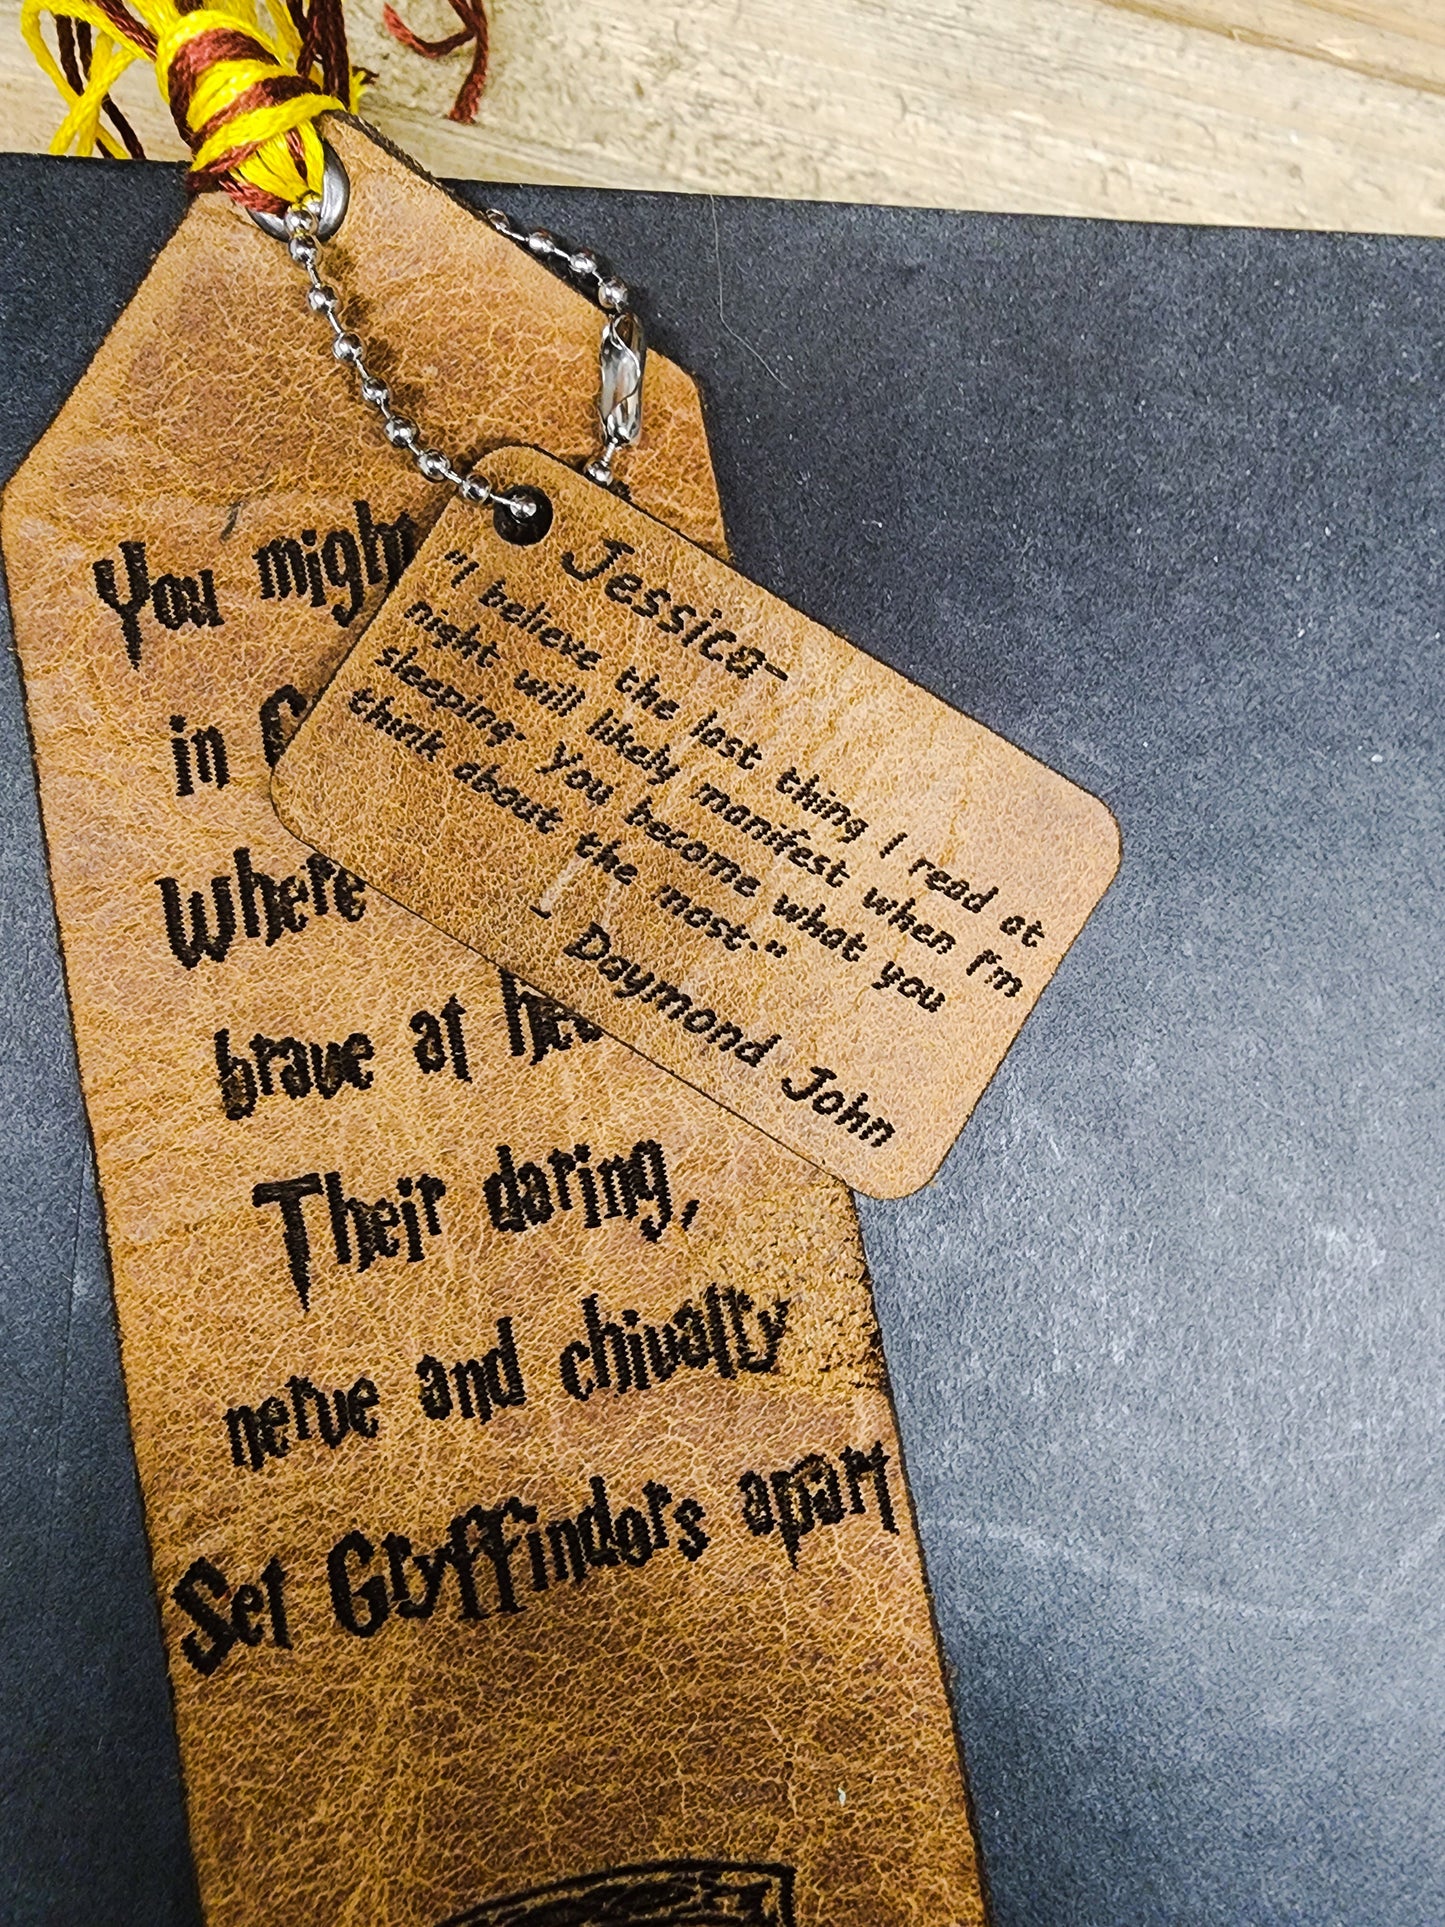 You
in
Where
brave at
Their daring,
nerve and chivalry
Set Gryffindors apart
Jessica-
"I believe the last thing I read at
night will likely manifest when I'm
sleeping. You become what you
think about the most."
- Daymond John